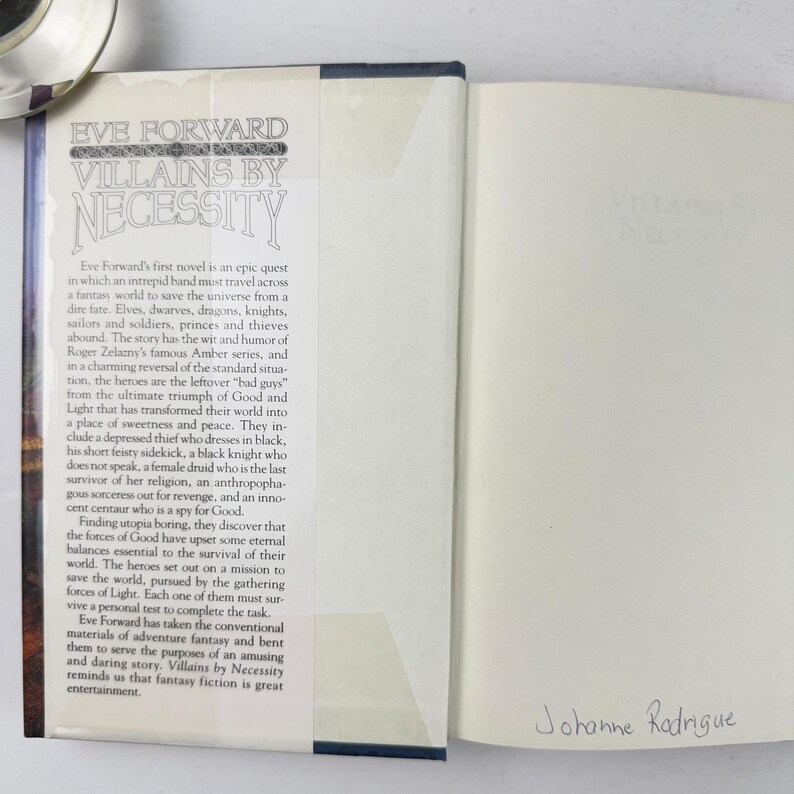 EVE FORWARD
VILLAINS BY
NECESSITY
Eve Forward's first novel is an epic quest
in which an intrepid band must travel across
a fantasy world to save the universe from a
dire fate. Elves, dwarves, dragons, knights,
sailors and soldiers, princes and thieves
abound. The story has the wit and humor of
Roger Zelazny's famous Amber series, and
in a charming reversal of the standard situa-
tion, the heroes are the leftover "bad guys"
from the ultimate triumph of Good and
Light that has transformed their world into
a place of sweetness and peace. They in-
clude a depressed thief who dresses in black,
his short feisty sidekick, a black knight who
does not speak, a female druid who is the last
survivor of her religion, an anthropopha-
gous sorceress out for revenge, and an inno-
cent centaur who is a spy for Good.
Finding utopia boring, they discover that
the forces of Good have upset some eternal
balances essential to the survival of their
world. The heroes set out on a mission to
save the world, pursued by the gathering
forces of Light. Each one of them must sur-
vive a personal test to complete the task.
Eve Forward has taken the conventional
materials of adventure fantasy and bent
them to serve the purposes of an amusing
and daring story. Villains by Necessity
reminds us that fantasy fiction is great
entertainment.
VILLAINS BY
NECESSITY
Johanne Rodrigue